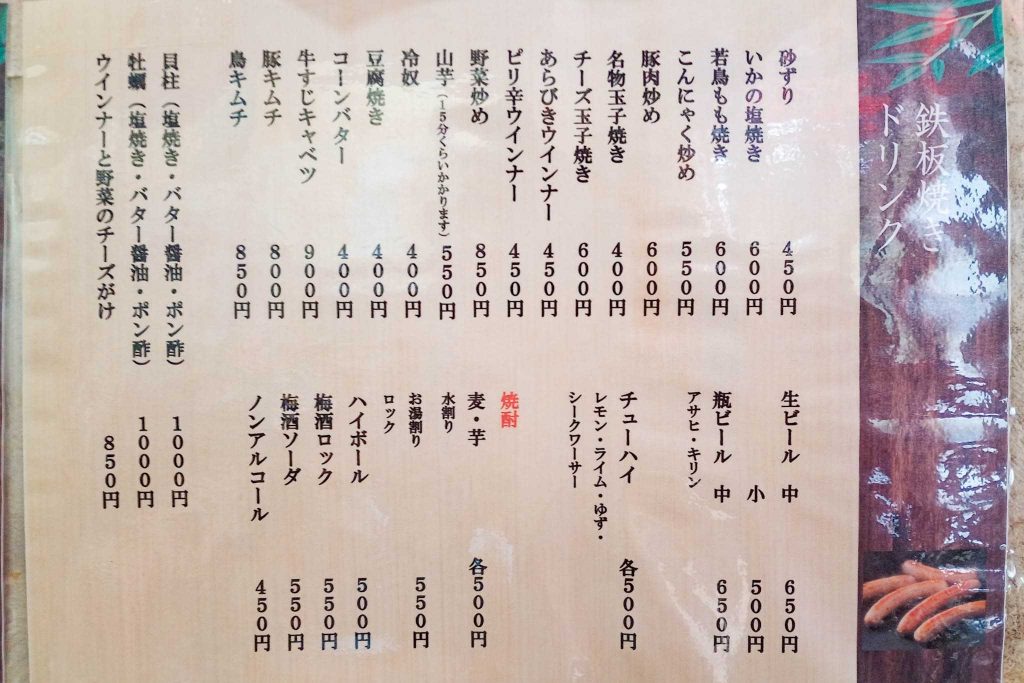 鉄板焼き
ドリンク
砂ずり 450円
いかの塩焼き 600円
若鳥もも焼き 600円
こんにゃく炒め 550円
豚肉炒め 600円
名物玉子焼き 400円
チーズ玉子焼き 600円
あらびきウインナー 450円
ピリ辛ウインナー 450円
野菜炒め 850円
山芋(15分くらいかかります) 550円
冷奴 400円
豆腐焼き 400円
コーンバター 400円
牛すじキャベツ 900円
豚キムチ 800円
鳥キムチ 850円
貝柱(塩焼き・バター醤油・ポン酢) 1000円
牡蠣(塩焼き・バター醤油・ポン酢) 1000円
ウインナーと野菜のチーズがけ 850円
生ビール 中 650円
小 500円
瓶ビール 中 650円
アサヒ・キリン
チューハイ 各500円
レモン・ライム・ゆず・
シークワーサー
焼酎
麦・芋 各500円
水割り
お湯割り 550円
ロック
ハイボール 500円
梅酒ロック 550円
梅酒ソーダ 550円
ノンアルコール 450円